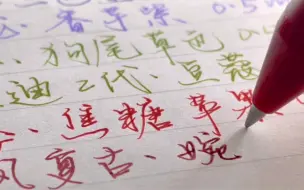 香芋紫、0.5
、狗尾草色
迪二代、豆蔻
、焦糖苹果
风复古、婉